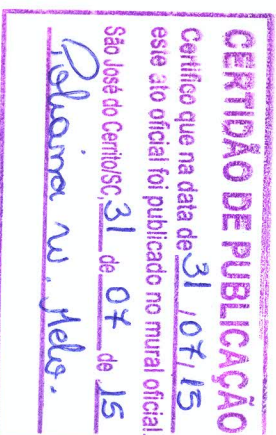 CERTIDÃO DE PUBLICAÇÃO
Certifico que na data de 31 / 07 / 15
este ato oficial foi publicado no mural oficial.
São José do Cerrito/SC, 31 de 07 de 15
W. Melo.